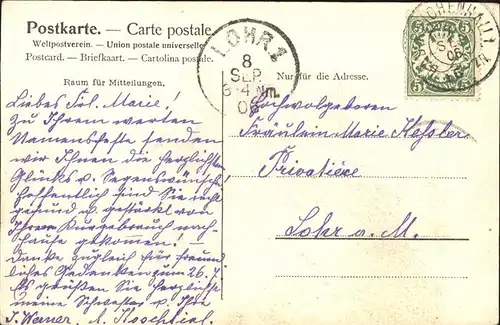 Postkarte. — Carte postale.
Weltpostverein. – Union postale universelle.
Postcard. — Briefkarte. — Cartolina postale.
Raum für Mitteilungen.
Nur für die Adresse.
LOHR 1
8
SEP.
3-4 Nm.
06
5 5
Liebes Frl. Marie!
Zu Ihrem werten
Namensfeste senden
wir Ihnen die herzlichsten
Glücks u. Segenswünsche!
Hoffentlich sind Sie recht
gesund u. gestärkt von
Ihrem Kurgebrauch nach-
hause gekommen.
Danke zugleich für freund
liches Gedenken zum 26. 7.
Es grüßen Sie herzlichst
meine Schwester u. Ihre
J. Werner.
Hochwolgeboren
Fräulein Marie Kessler
Privatière
Lohr a. M.